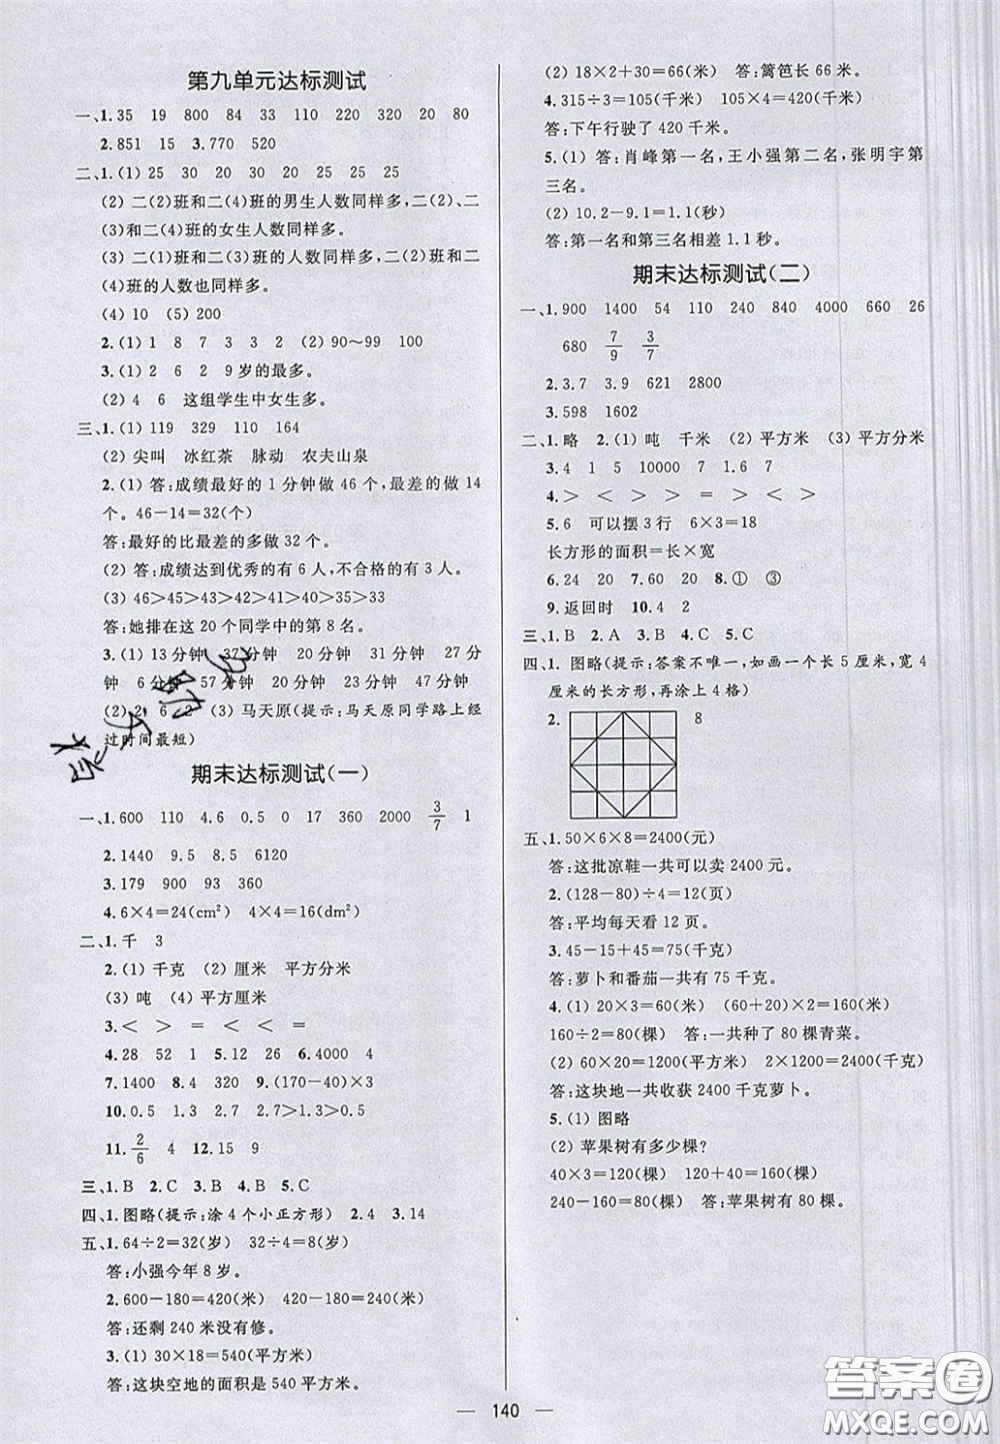 第九单元达标测试
一、1.35 19 800 84 33 110 220 320 20 80
2.851 15 3.770 520
二、1.(1) 25 30 20 30 20 25 25 25
(2) 二(1)班和二(4)班的男生人数同样多,二(2)、二
(3)和二(4)班的女生人数同样多。
(3) 二(1)班和二(3)班的人数同样多,二(2)班和二(4)
班的人数也同样多。
(4) 10 (5) 200
2.(1) 1 8 7 3 3 2 (2) 90～99 100
3.(1) 2 6 2 9岁的最多。
(2) 4 6 这组学生中女生多。
三、1.(1) 119 329 110 164
(2) 尖叫 冰红茶 脉动 农夫山泉
2.(1) 答:成绩最好的1分钟做46个,最差的做14
个。46－14＝32(个)
答:最好的比最差的多做32个。
(2) 答:成绩达到优秀的有6人,不合格的有3人。
(3) 46＞45＞43＞42＞41＞37＞36＞35＞33
答:她排在这20个同学中的第8名。
3.(1) 13分钟 37分钟 20分钟 31分钟 27分
钟 10分钟 25分钟 23分钟 47分钟 16分钟
(2) 2 6 2 (3) 马天原(提示:马天原同学路上经
过时间最短)
期末达标测试(一)
一、1.600 110 4.6 0.5 0 17 360 2000 3/7 1
2.1440 9.5 8.5 6120
3.179 900 93 360
4.6×4＝24(cm²) 4×4＝16(dm²)
二、1.千 3
2.(1) 千克 (2) 厘米 平方分米
(3) 吨 (4) 平方厘米
3.＜ ＞ ＝ ＜ ＜ ＝
4.28 52 1 5.12 26 6.2000
7.1400 8.4 320 9.(170－40)×3
10.0.5 1.3 2.7 2.7＞1.3＞0.5
11.2/6 4 12.15 9
三、1.B 2.C 3.B 4.B 5.C
四、1.图略(提示:涂4个小正方形) 2.4 3.14
五、1.64÷2＝32(岁) 32÷4＝8(岁)
答:小强今年8岁。
2.600－180＝420(米) 420－180＝240(米)
答:还剩240米没有修。
3.(1) 30×18＝540(平方米)
答:这块空地的面积是540平方米。
(2) 18×2＋30＝66(米) 答:篱笆长66米。
4.315÷3＝105(千米) 105×4＝420(千米)
答:下午行驶了420千米。
5.(1) 答:肖峰第一名,王小强第二名,张明宇第
三名。
(2) 10.2－9.1＝1.1(秒)
答:第一名和第三名相差1.1秒。
期末达标测试(二)
一、1.900 1400 54 110 240 840 4000 660 26
680 7/9 3/7
2.3.7 3.9 621 2800
3.598 1602
二、1.略 2.(1) 吨 千米 (2) 平方米 (3) 平方分米
3.4 1 5 10000 7 1.6 7
4.＞ ＞ ＜ ＞ ＝ ＞ ＜ ＞
5.6 可以摆3行 6×3＝18
长方形的面积＝长×宽
6.24 20 7.60 20 8.① ③
9.返回时 10.4 2
三、1.B 2.A 3.B 4.C 5.C
四、1. 图略(提示:答案不唯一,如画一个长5厘米,宽4
厘米的长方形,再涂上4格)
2. 8
五、1.50×6×8＝2400(元)
答:这批凉鞋一共可以卖2400元。
2.(128－80)÷4＝12(页)
答:平均每天看12页。
3.45－15＋45＝75(千克)
答:萝卜和番茄一共有75千克。
4.(1) 20×3＝60(米) (60＋20)×2＝160(米)
160÷2＝80(棵) 答:一共种了80棵青菜。
(2) 60×20＝1200(平方米) 2×1200＝2400(千克)
答:这块地一共收获2400千克萝卜。
5.(1) 图略
(2) 苹果树有多少棵?
40×3＝120(棵) 120＋40＝160(棵)
240－160＝80(棵) 答:苹果树有80棵。
— 140 —
答案圈
MXQE.COM